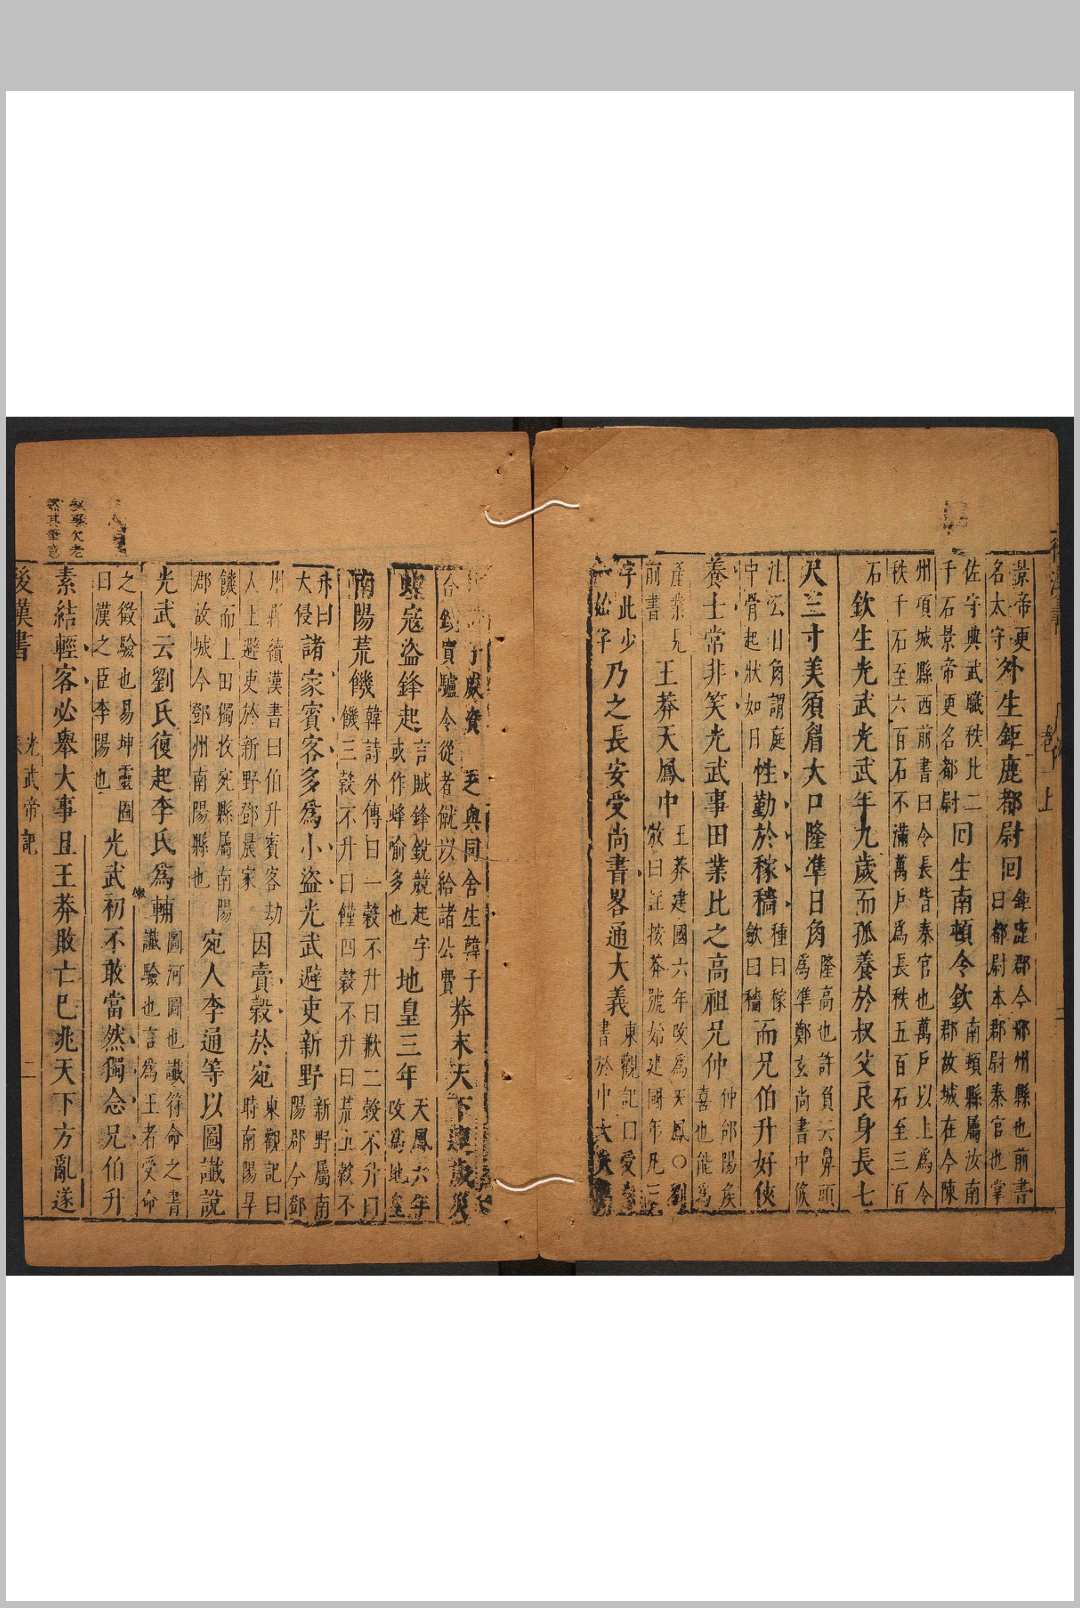 景帝更名太守外生鉅鹿都尉回鉅鹿郡今邢州縣也前書曰都尉本郡尉秦官也掌
佐守典武職秩比二千石景帝更名都尉回生南頓令欽南頓縣屬汝南郡故城在今陳
州項城縣西前書曰令長皆秦官也萬戶以上為令秩千石至六百石不滿萬戶為長秩五百石至三百
石欽生光武光武年九歲而孤養於叔父良身長七
尺三寸美須眉大口隆準日角隆高也許負云鼻頭為準鄭玄尚書中候
注云日角謂庭中骨起狀如日性勤於稼穡種曰稼斂曰穡而兄伯升好俠
養士常非笑光武事田業比之高祖兄仲仲郃陽侯喜也能為
產業見前書王莽天鳳中王莽建國六年改為天鳳○劉攽曰註按莽號始建國年凡三
字此少一始字乃之長安受尚書畧通大義東觀記曰受尚書於中大夫
子威資乏與同舍生韓子合錢買驢令從者僦以給諸公費莽末天下連歲災
蝗寇盜鋒起言賊鋒銳競起字或作蜂喻多也地皇三年天鳳六年改為地皇
南陽荒饑韓詩外傳曰一穀不升曰歉二穀不升曰饑三穀不升曰饉四穀不升曰荒五穀不
升曰大侵諸家賓客多為小盜光武避吏新野新野屬南陽郡今鄧
州縣續漢書曰伯升賓客劫人上避吏於新野鄧晨家因賣穀於宛東觀記曰時南陽旱
饑而上田獨收宛縣屬南陽郡故城今鄧州南陽縣也宛人李通等以圖讖說
光武云劉氏復起李氏為輔圖河圖也讖符命之書讖驗也言為王者受命
之徵驗也易坤靈圖曰漢之臣李陽也光武初不敢當然獨念兄伯升
素結輕客必舉大事且王莽敗亡已兆天下方亂遂
後漢書 光武帝記 二